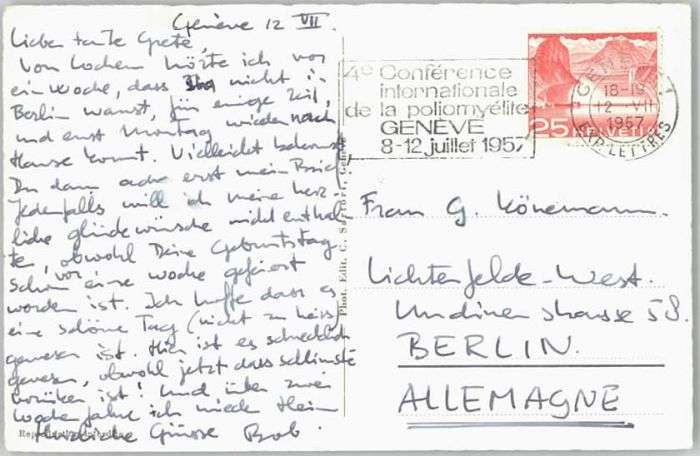 Genève 12 VII
Liebe tante Grete,
Von Jochem hörte ich vor
ein woche, dass nicht in
Berlin warst, für einige Zeit,
und erst Montag wieder nach
Hause kommt. Vielleicht bekommst
Du dann auch erst mein Brief
Jedenfalls will ich meine herz-
liche glückwünsche nicht enthal-
ten, obwohl Deine Geburtstag
schon vor eine woche gefeiert
worden ist. Ich hoffe dass es
eine schöne Tag (nicht zu heiss)
gewesen ist. Hier ist es schrecklich
gewesen, obwohl jetzt das schlimste
vorüber ist! Und über zwei
wochen fahre ich wieder Heim
Herzliche Grüsse Bob.
4e Conférence
internationale
de la poliomyélite
GENÈVE
8-12 juillet 1957
GENÈVE 1
18-19
12 VII
1957
EXP. LETTRES
25 HELVETIA
Phot. Edit. C. Sartori, Genève
Frau G. Könemann.
Lichterfelde-West.
Undinenstrasse 58.
BERLIN.
ALLEMAGNE